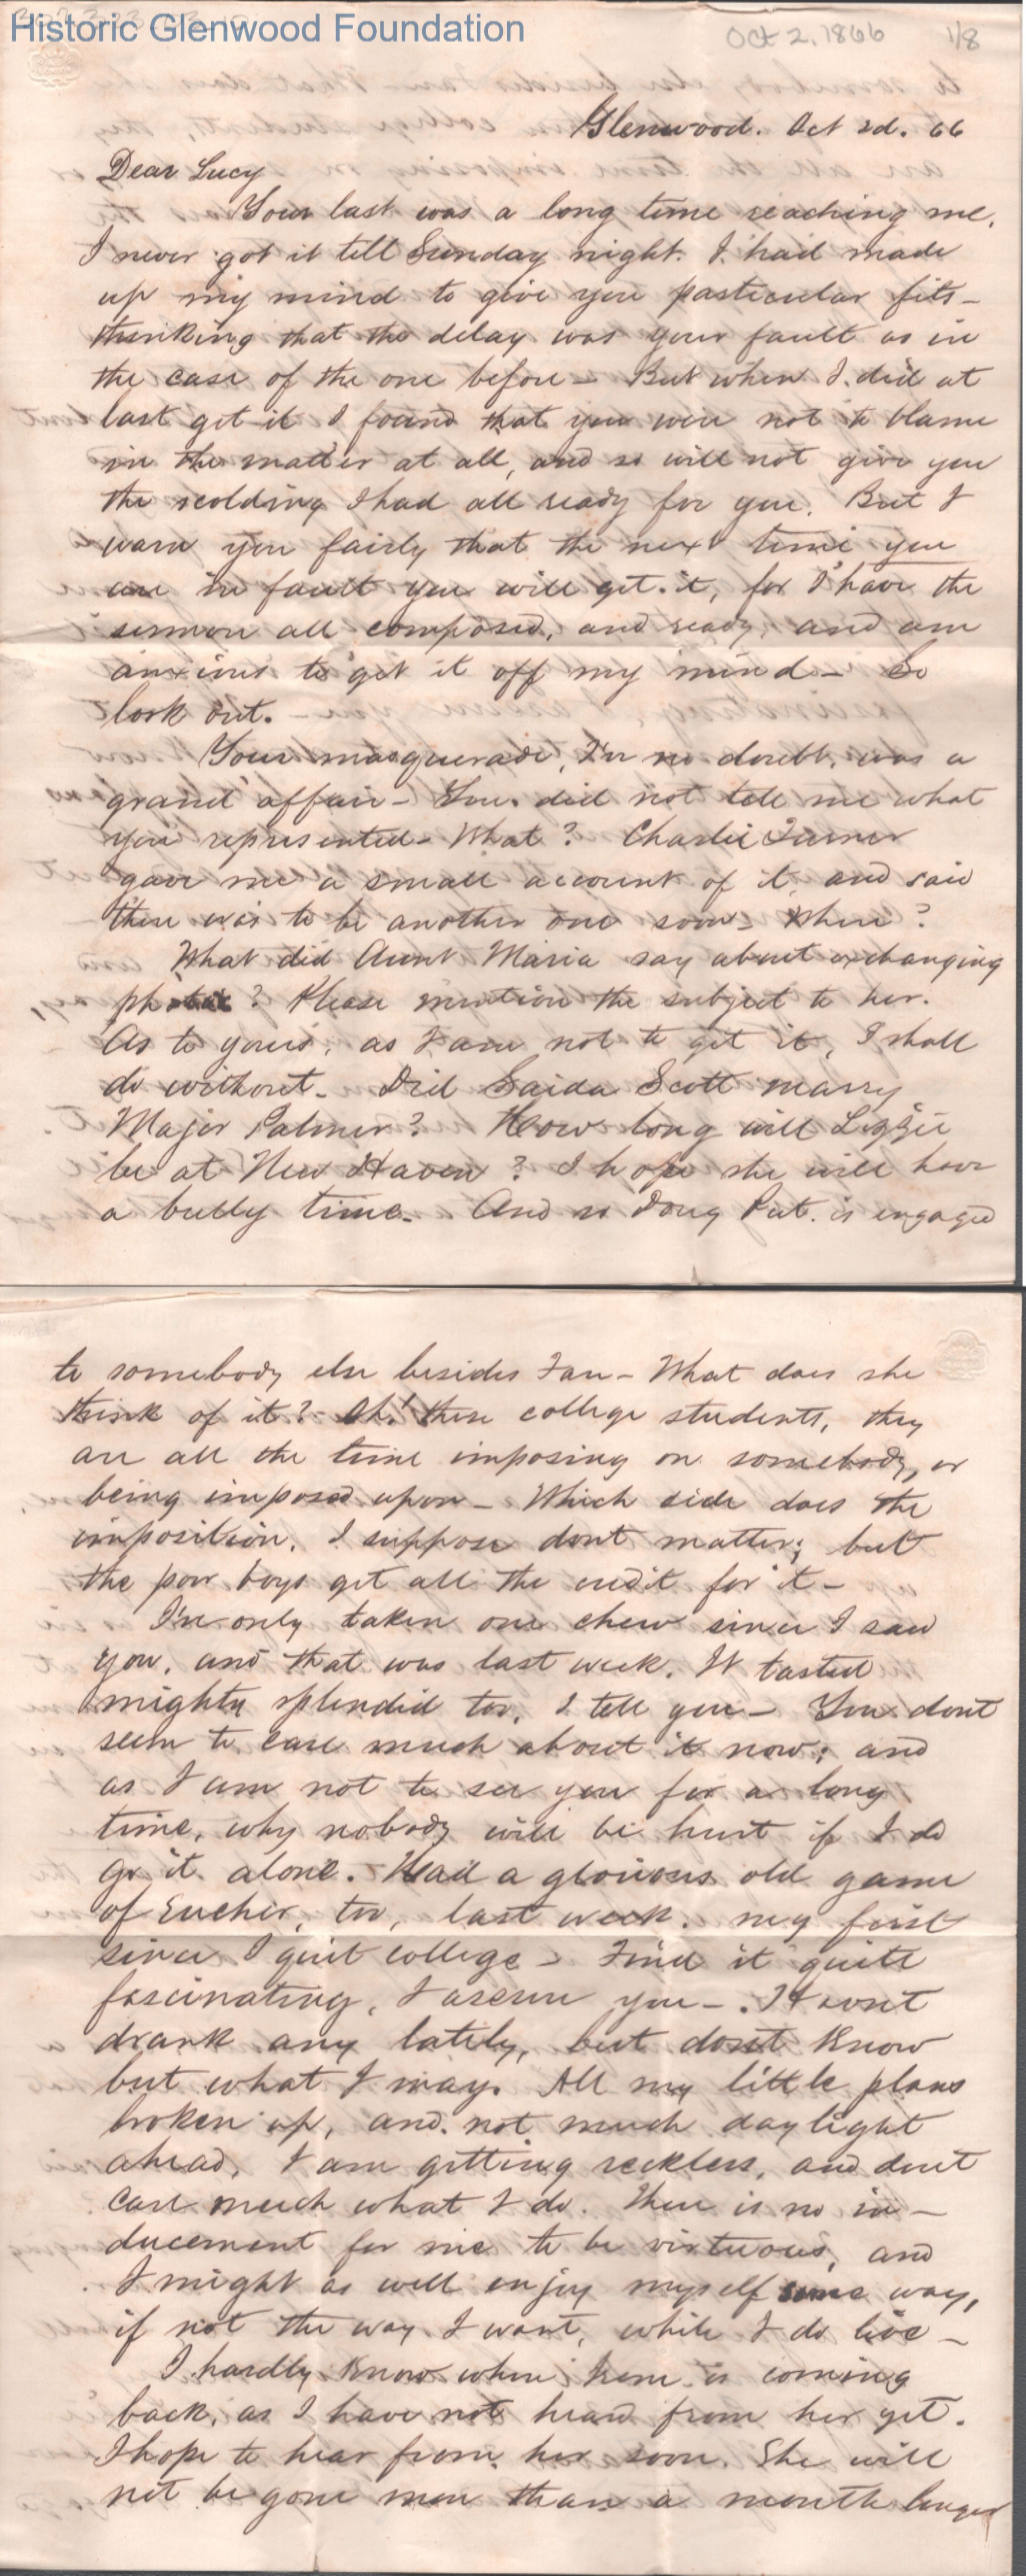 Historic Glenwood Foundation
Oct 2, 1866 1/8
Glenwood. Oct 2d. 66
Dear Lucy
Your last was a long time reaching me.
I never got it till Sunday night. I had made
up my mind to give you particular fits –
thinking that the delay was your fault as in
the case of the one before – But when I did at
last get it I found that you were not to blame
in the matter at all, and so will not give you
the scolding I had all ready for you. But I
warn you fairly that the next time you
are in fault you will get it, for I have the
sermon all composed, and ready, and am
anxious to get it off my mind – So
look out.
Your masquerade, I've no doubt, was a
grand affair – You did not tell me what
you represented – What? Charlie Turner
gave me a small account of it, and said
there was to be another one soon – Where?
What did Aunt Maria say about exchanging
? Please mention the subject to her.
As to yours, as I am not to get it, I shall
do without. Did Saida Scott marry
Major Palmer? How long will Lizzie
be at New Haven? I hope she will have
a bully time. And so Doug Put. is engaged
to somebody else besides Fan – What does she
think of it? Oh! these college students, they
are all the time imposing on somebody, or
being imposed upon – Which side does the
imposition, I suppose dont matter; but
the poor boys get all the credit for it –
I've only taken one chew since I saw
you, and that was last week. It tasted
mighty splendid too, I tell you – You dont
seem to care much about it now; and
as I am not to see you for a long
time, why nobody will be hurt if I do
go it alone. Had a glorious old game
of Eucher, too, last week. my first
since I quit college – Find it quite
fascinating, I assure you –
drank any lately, but dont know
but what I may. All my little plans
broken up, and not much daylight
ahead, I am getting reckless, and dont
care much what I do. There is no in–
ducement for me to be virtuous, and
I might as well enjoy myself some way,
if not the way I want, while I do live –
I hardly know when is coming
back, as I have not heard from her yet.
I hope to hear from her soon. She will
not be gone more than a month longer